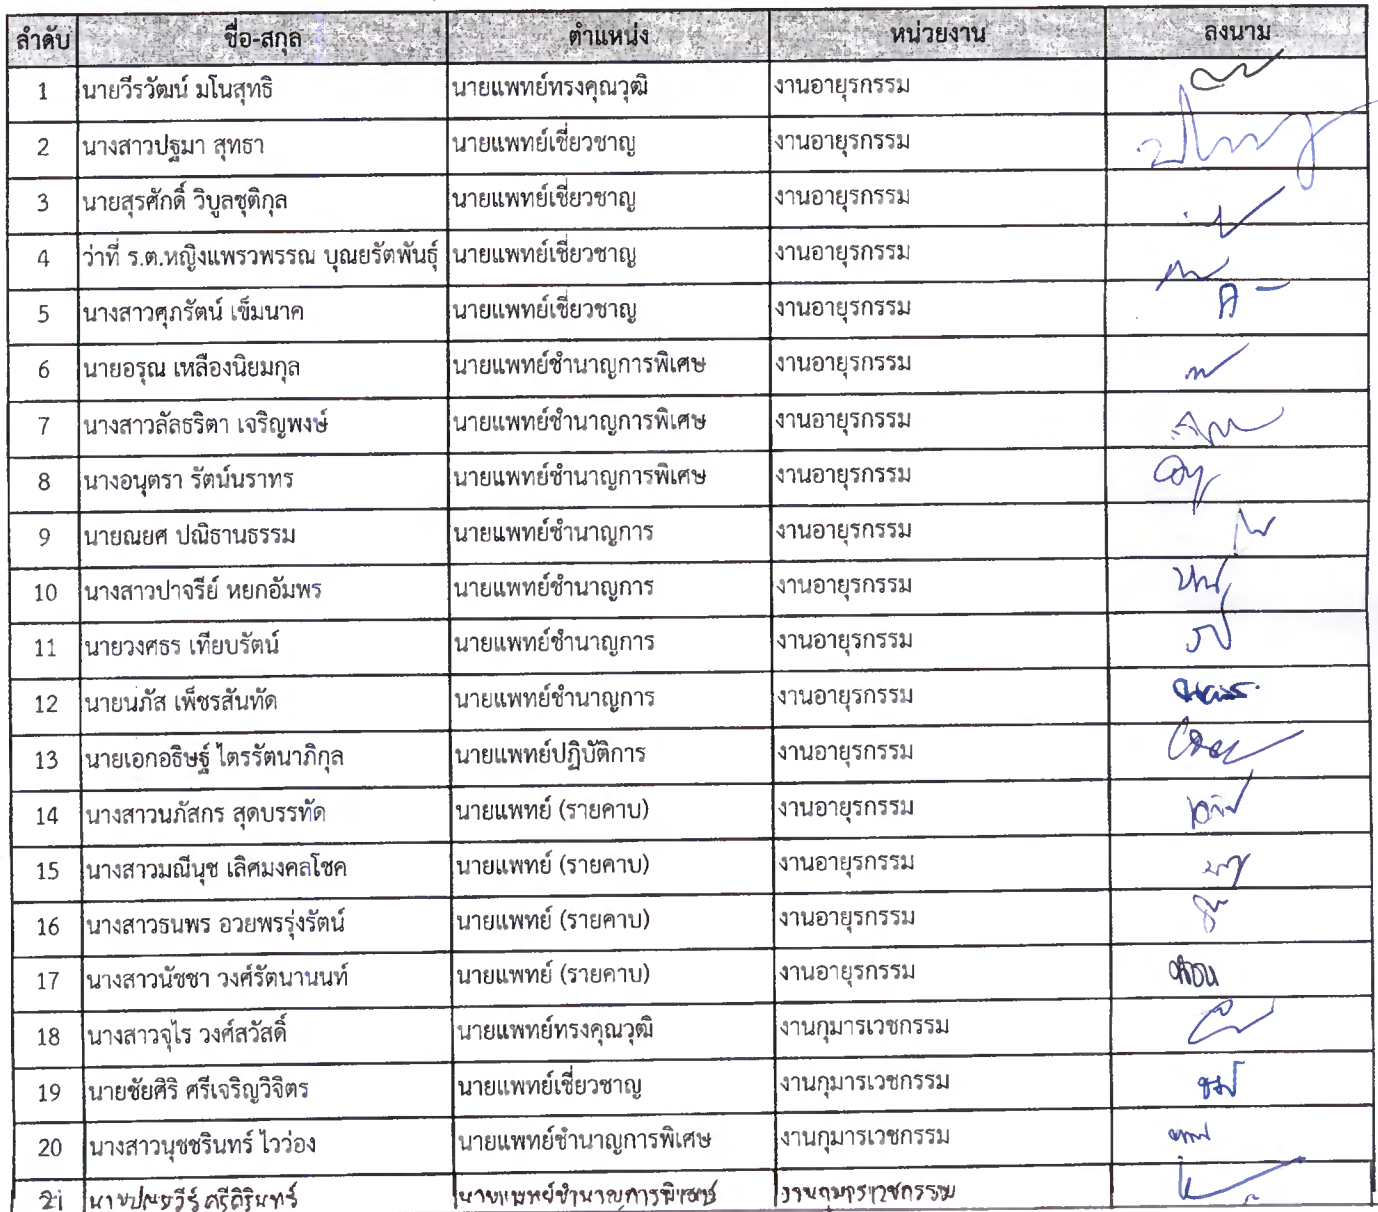 ลำดับ ชื่อ-สกุล ตำแหน่ง หน่วยงาน ลงนาม
1 นายวีรวัฒน์ มโนสุทธิ นายแพทย์ทรงคุณวุฒิ งานอายุรกรรม
2 นางสาวปฐมา สุทธา นายแพทย์เชี่ยวชาญ งานอายุรกรรม
3 นายสุรศักดิ์ วิบูลชุติกุล นายแพทย์เชี่ยวชาญ งานอายุรกรรม
4 ว่าที่ ร.ต.หญิงแพรวพรรณ บุณยรัตพันธุ์ นายแพทย์เชี่ยวชาญ งานอายุรกรรม
5 นางสาวศุภรัตน์ เข็มนาค นายแพทย์เชี่ยวชาญ งานอายุรกรรม
6 นายอรุณ เหลืองนิยมกุล นายแพทย์ชำนาญการพิเศษ งานอายุรกรรม
7 นางสาวลัลธริตา เจริญพงษ์ นายแพทย์ชำนาญการพิเศษ งานอายุรกรรม
8 นางอนุตรา รัตน์นราทร นายแพทย์ชำนาญการพิเศษ งานอายุรกรรม
9 นายณยศ ปณิธานธรรม นายแพทย์ชำนาญการ งานอายุรกรรม
10 นางสาวปาจรีย์ หยกอัมพร นายแพทย์ชำนาญการ งานอายุรกรรม
11 นายวงศธร เทียบรัตน์ นายแพทย์ชำนาญการ งานอายุรกรรม
12 นายนภัส เพ็ชรสันทัด นายแพทย์ชำนาญการ งานอายุรกรรม
13 นายเอกอธิษฐ์ ไตรรัตนาภิกุล นายแพทย์ปฏิบัติการ งานอายุรกรรม
14 นางสาวนภัสกร สุดบรรทัด นายแพทย์ (รายคาบ) งานอายุรกรรม
15 นางสาวมณีนุช เลิศมงคลโชค นายแพทย์ (รายคาบ) งานอายุรกรรม
16 นางสาวธนพร อวยพรรุ่งรัตน์ นายแพทย์ (รายคาบ) งานอายุรกรรม
17 นางสาวนัชชา วงศ์รัตนานนท์ นายแพทย์ (รายคาบ) งานอายุรกรรม
18 นางสาวจุไร วงศ์สวัสดิ์ นายแพทย์ทรงคุณวุฒิ งานกุมารเวชกรรม
19 นายชัยศิริ ศรีเจริญวิจิตร นายแพทย์เชี่ยวชาญ งานกุมารเวชกรรม
20 นางสาวนุชชรินทร์ ไวว่อง นายแพทย์ชำนาญการพิเศษ งานกุมารเวชกรรม
21 นายแพทย์ชำนาญการพิเศษ งานกุมารเวชกรรม